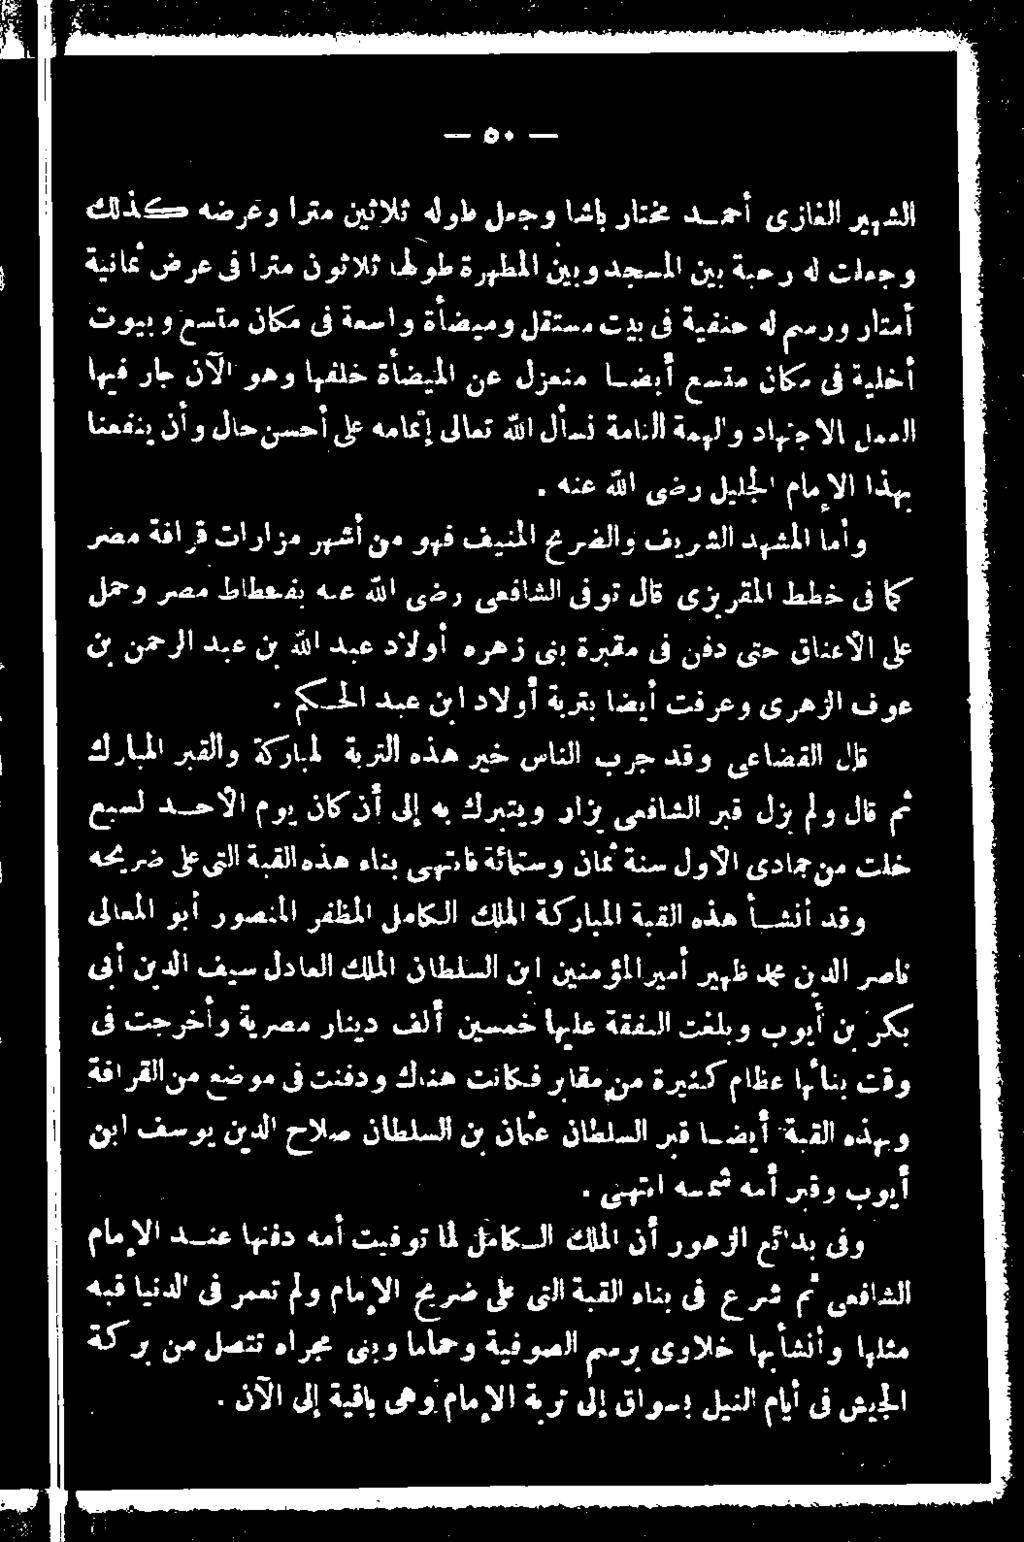 — ٥٠ —
الشهير الغازى أحمد مختار باشا وجعل طوله ثلاثين مترا وعرضه كذلك
وجعلت له رحبة بين المسجد وبين المطهرة طولها ثلاثون مترا فى عرض ثمانية
أمتار ورسم له حنفية فى بيت مستقل وميضأة واسعة فى مكان متسع وبيوت
أخلية فى مكان متسع أيضا منعزل عن الميضأة خلفها وهو الآن جار فيها
العمل الاجتهاد والهمة التامة نسأل الله تعالى إتمامه على أحسن حال وأن ينفعنا
بهذا الإمام الجليل رضى الله عنه .
وأما المشهد الشريف والضريح المنيف فهو من أشهر مزارات قرافة مصر
كما فى خطط المقريزى قال توفى الشافعى رضى الله عنه بفسطاط مصر وحمل
على الأعناق حتى دفن فى مقبرة بنى زهره أولاد عبد الله بن عبد الرحمن بن
عوف الزهرى وعرفت أيضا بتربة أولاد ابن عبد الحكم .
قال القضاعى وقد جرب الناس خير هذه التربة المباركة والقبر المبارك
ثم قال ولم يزل قبر الشافعى يزار ويتبرك به إلى أن كان يوم الأحد لسبع
خلت من جمادى الأول سنة ثمان وستمائة فانتهى بناء هذه القبة التى على ضريحه
وقد أنشأ هذه القبة المباركة الملك الكامل المظفر المنصور أبو المعالى
ناصر الدين محمد ظهير أمير المؤمنين ابن السلطان الملك العادل سيف الدين أبى
بكر بن أيوب وبلغت النفقة عليها خمسين ألف دينار مصرية وأخرجت فى
وقت بنائها عظام كثيرة من مقابر كانت هناك ودفنت فى موضع من القرافة
وبهذه القبة أيضا قبر السلطان عثمان بن السلطان صلاح الدين يوسف ابن
أيوب وقبر أمه شمسه انتهى .
وفى بدائع الزهور أن الملك الكامل لما توفيت أمه دفنها عند الإمام
الشافعى ثم شرع فى بناء القبة التى على ضريح الإمام ولم تعمر فى الدنيا قبه
مثلها وأنشأ بها خلاوى برسم الصوفية وحماما وبنى مجراه تتصل من بركة
الجيش فى أيام النيل بسواق إلى تربة الإمام وهى باقية إلى الآن .